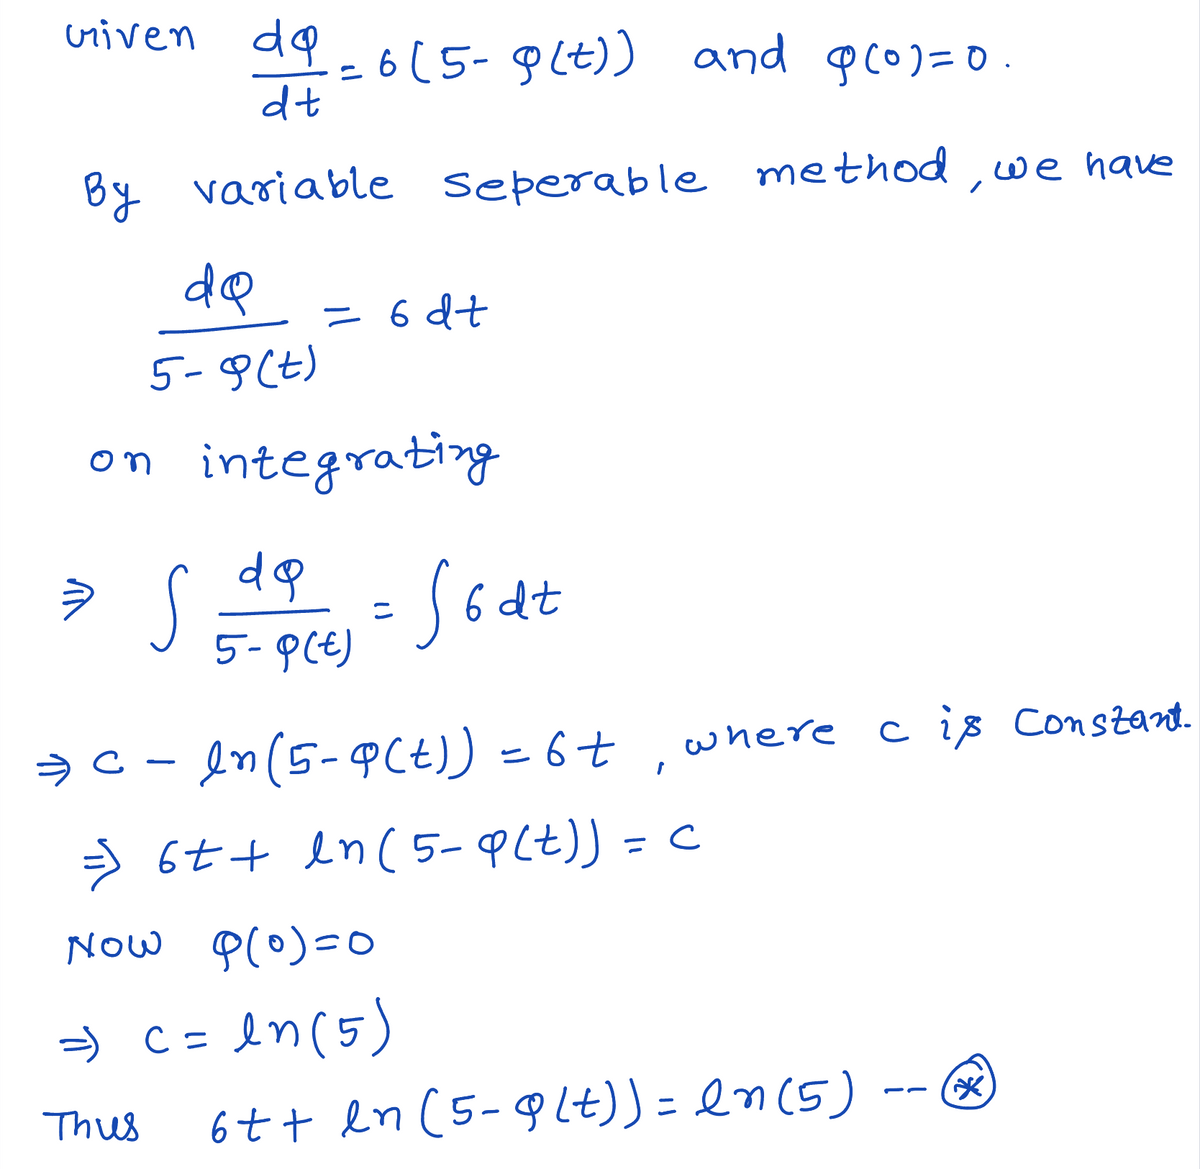 Given dφ/dt = 6(5-φ(t)) and φ(0)=0.
By variable seperable method, we have
dφ/(5-φ(t)) = 6 dt
on integrating
⇒ ∫ dφ/(5-φ(t)) = ∫ 6 dt
⇒ c - ln(5-φ(t)) = 6t , where c is constant.
⇒ 6t + ln(5-φ(t)) = c
Now φ(0)=0
⇒ c = ln(5)
Thus 6t + ln(5-φ(t)) = ln(5) -- ⊛